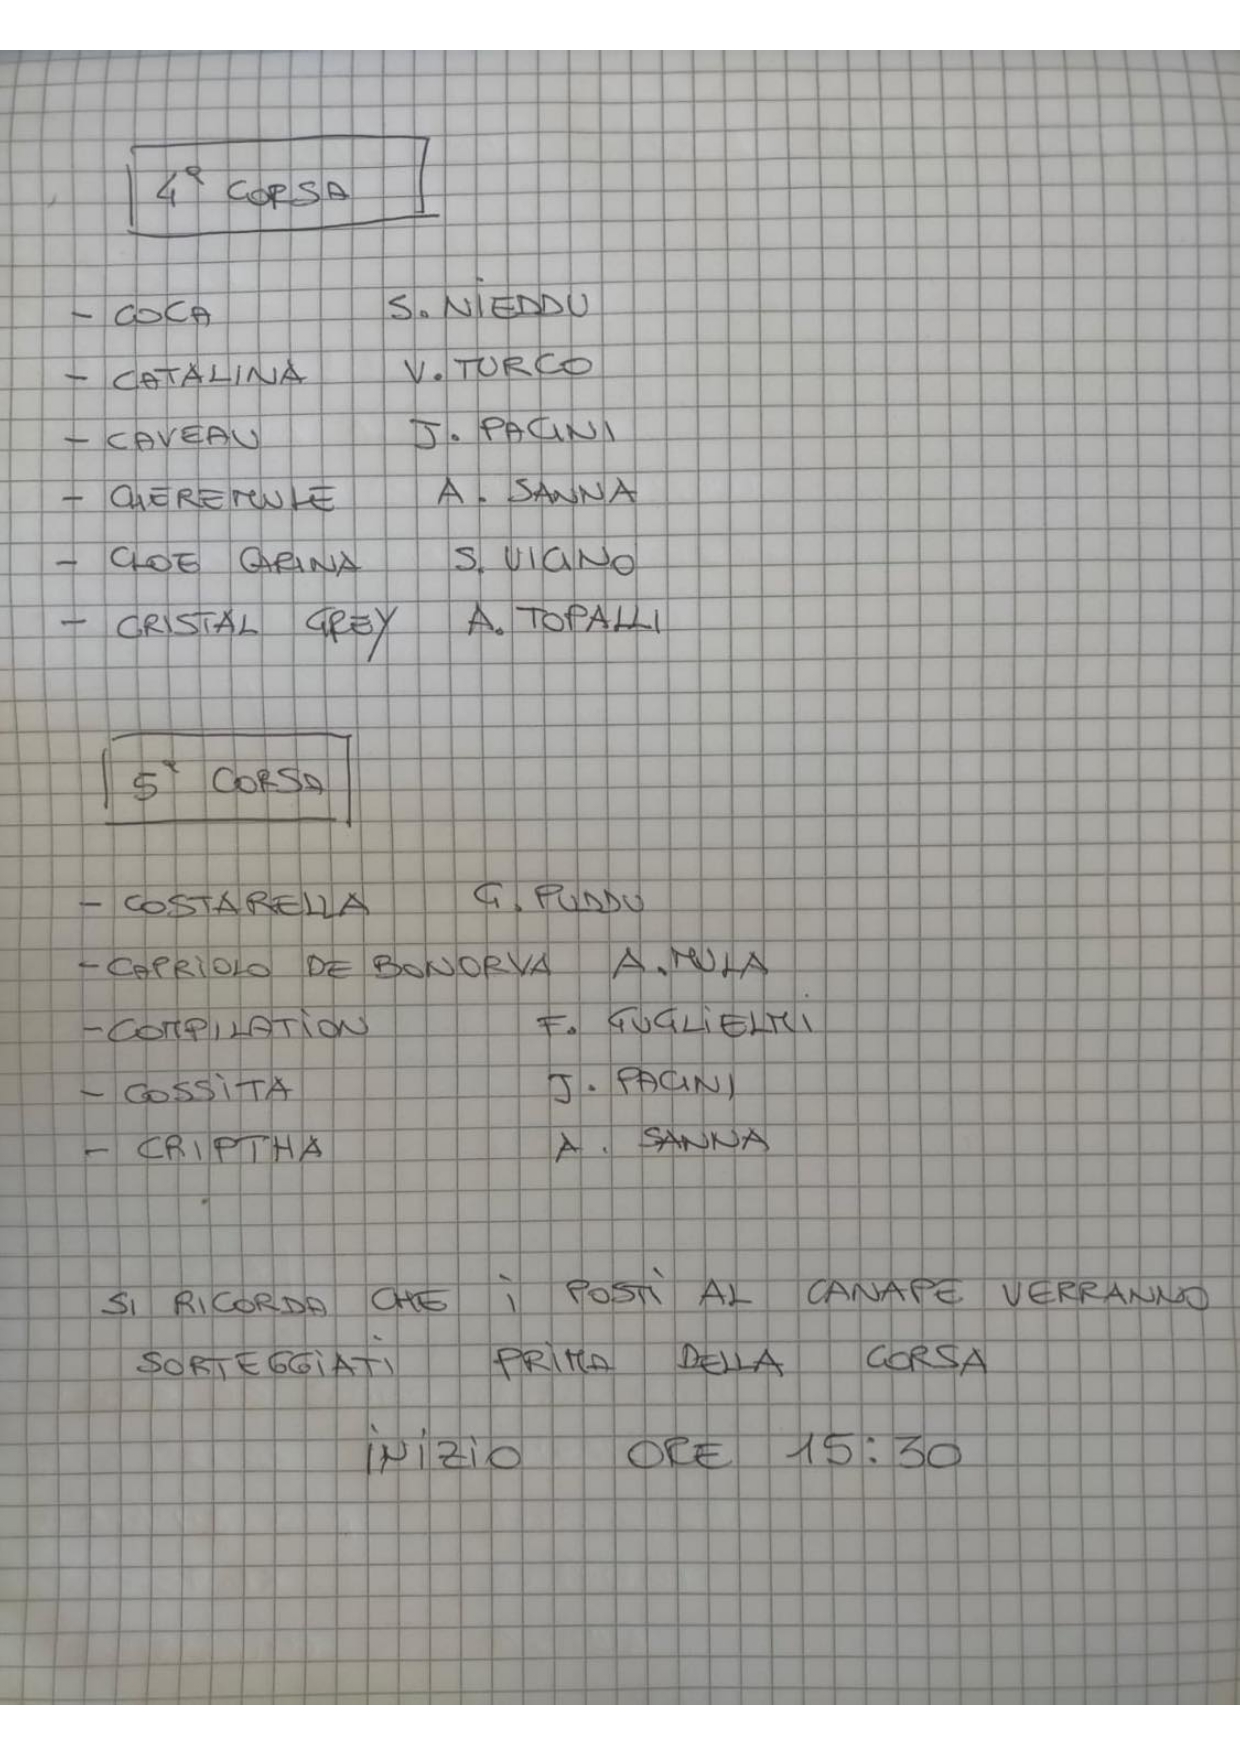 4ª CORSA
- COCA S. NIEDDU
- CATALINA V. TURCO
- CAVEAU J. PACINI
- CHEREMULE A. SANNA
- CLOE CARINA S. VIGNO
- CRISTAL GREY A. TOPALLI
5ª CORSA
- COSTARELLA G. PUDDU
- CAPRIOLO DE BONORVA A. MULA
- COMPILATION F. GUGLIELMI
- COSSITA J. PACINI
- CRIPTHA A. SANNA
SI RICORDA CHE i POSTI AL CANAPE VERRANNO
SORTEGGIATI PRIMA DELLA CORSA
INIZIO ORE 15:30